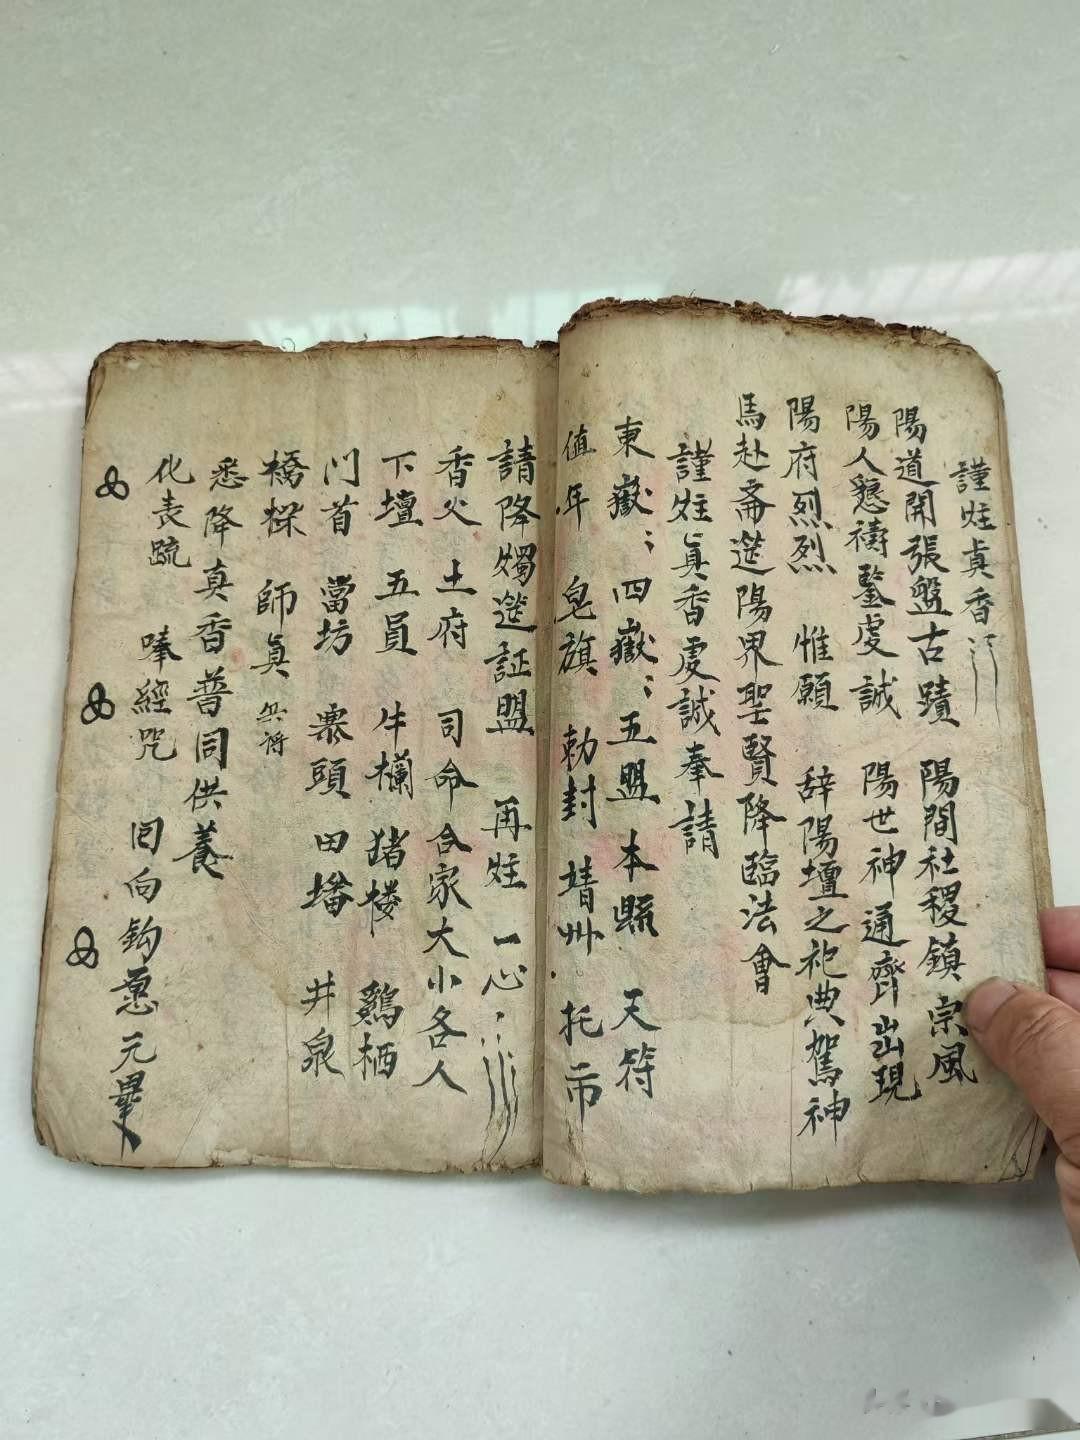 謹炷真香
陽道開張盤古蹟 陽間社稷鎮宗風
陽人懇禱鑒虔誠 陽世神通齊出現
陽府烈烈 惟願 辞陽壇之祀典駕神
馬赴斋筵陽界聖賢降臨法會
謹炷真香虔誠奉請
東嶽〻四嶽〻五盟本縣 天符
值年 皂旗 勅封 靖州 托市
請降燭筵証盟 再炷 一心
香火 土府 司命合家大小各人
下壇 五員 牛欄 猪楼 鷄栖
门首 當坊 寨頭 田墦 井泉
橋樑 師真
悉降真香普同供養
化表疏 唪經咒 回向鈎 元畢